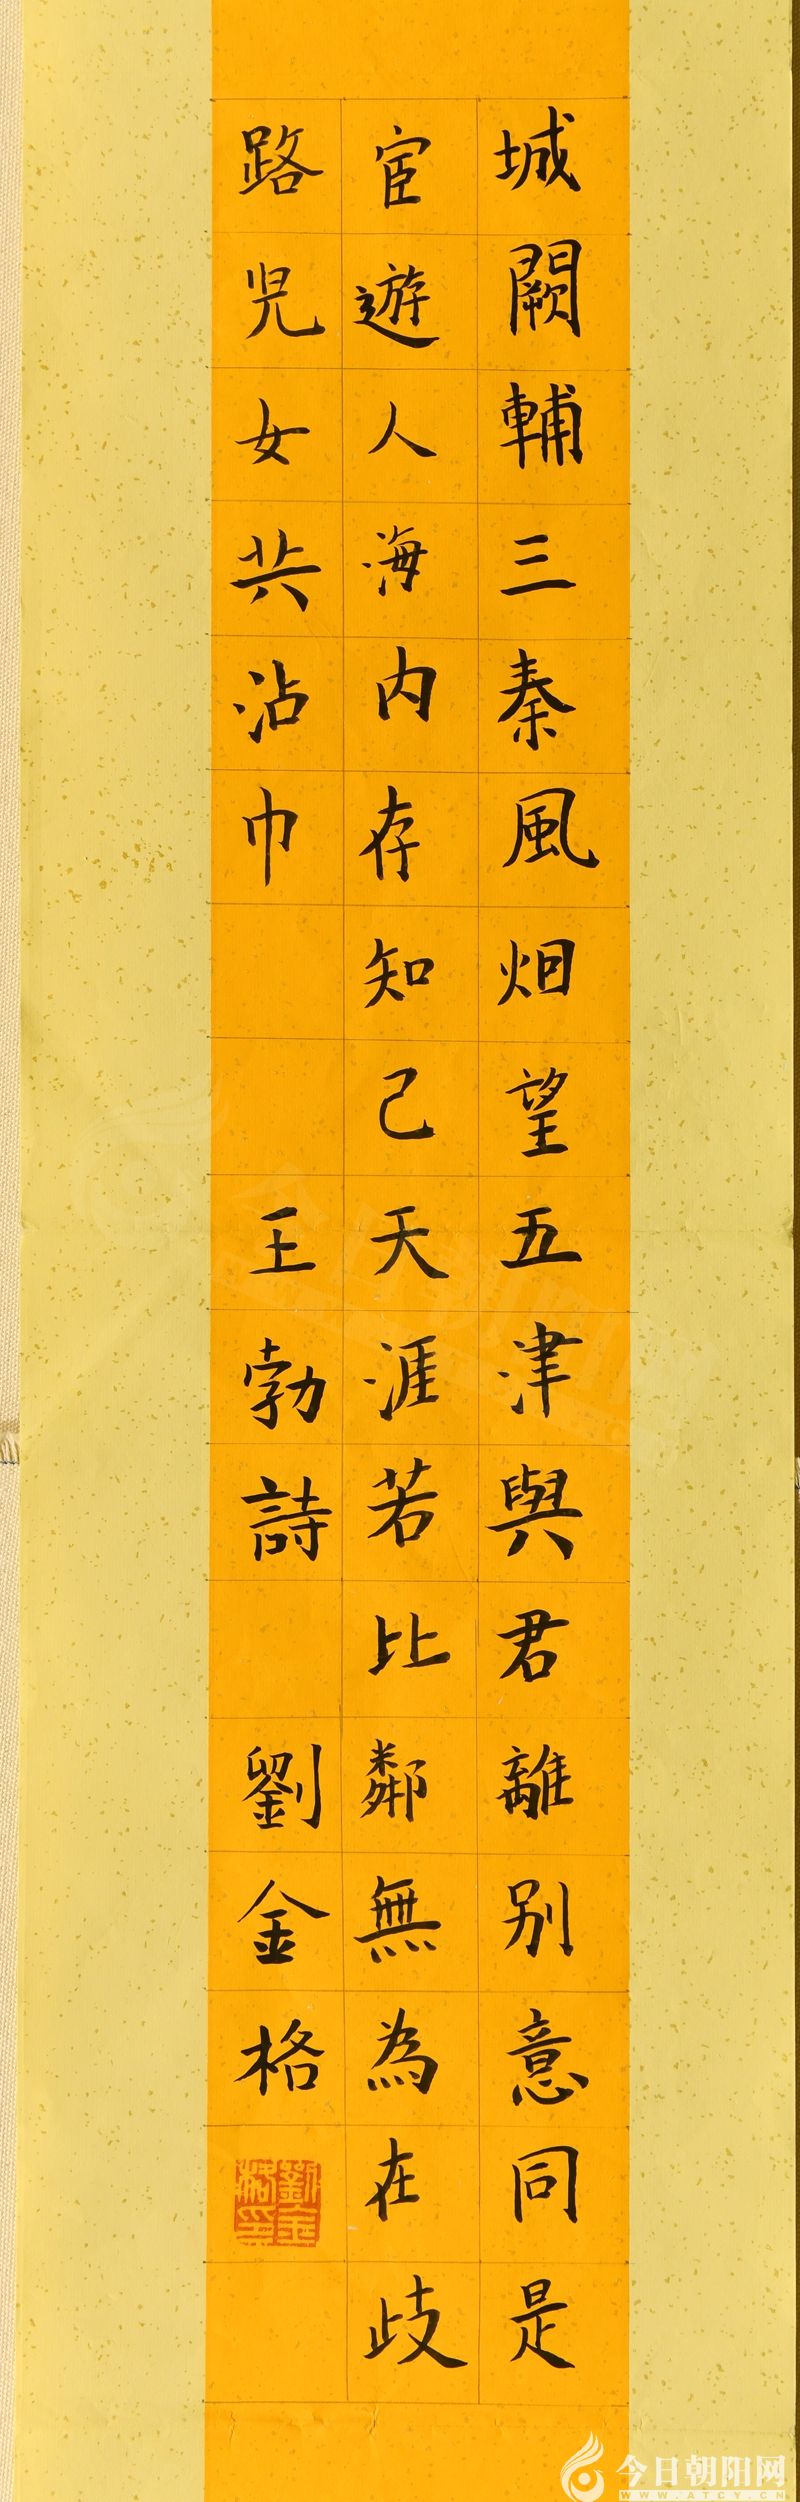 城闕輔三秦風烟望五津與君離別意同是
宦遊人海内存知己天涯若比鄰無為在歧
路児女共沾巾 王勃詩 劉金格
劉金格印
今日朝阳网
WWW.ATCY.CN